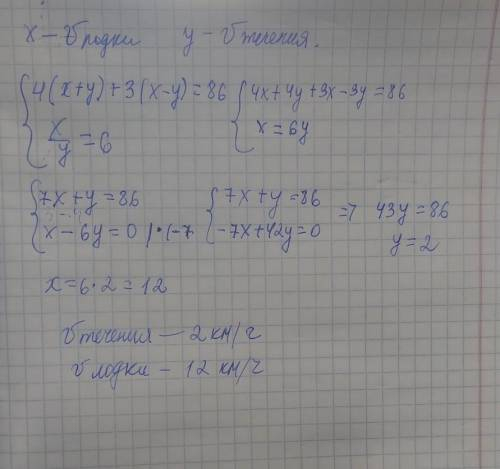 x – v лодки    y – v течения.
{ 4(x+y)+3(x-y)=86    { 4x+4y+3x-3y=86
x/y = 6    x=6y
{ 7x+y=86    { 7x+y=86
x-6y=0 |·(-7    -7x+42y=0    =7    43y=86
y=2
x=6·2=12
v течения — 2 км/г
v лодки – 12 км/г